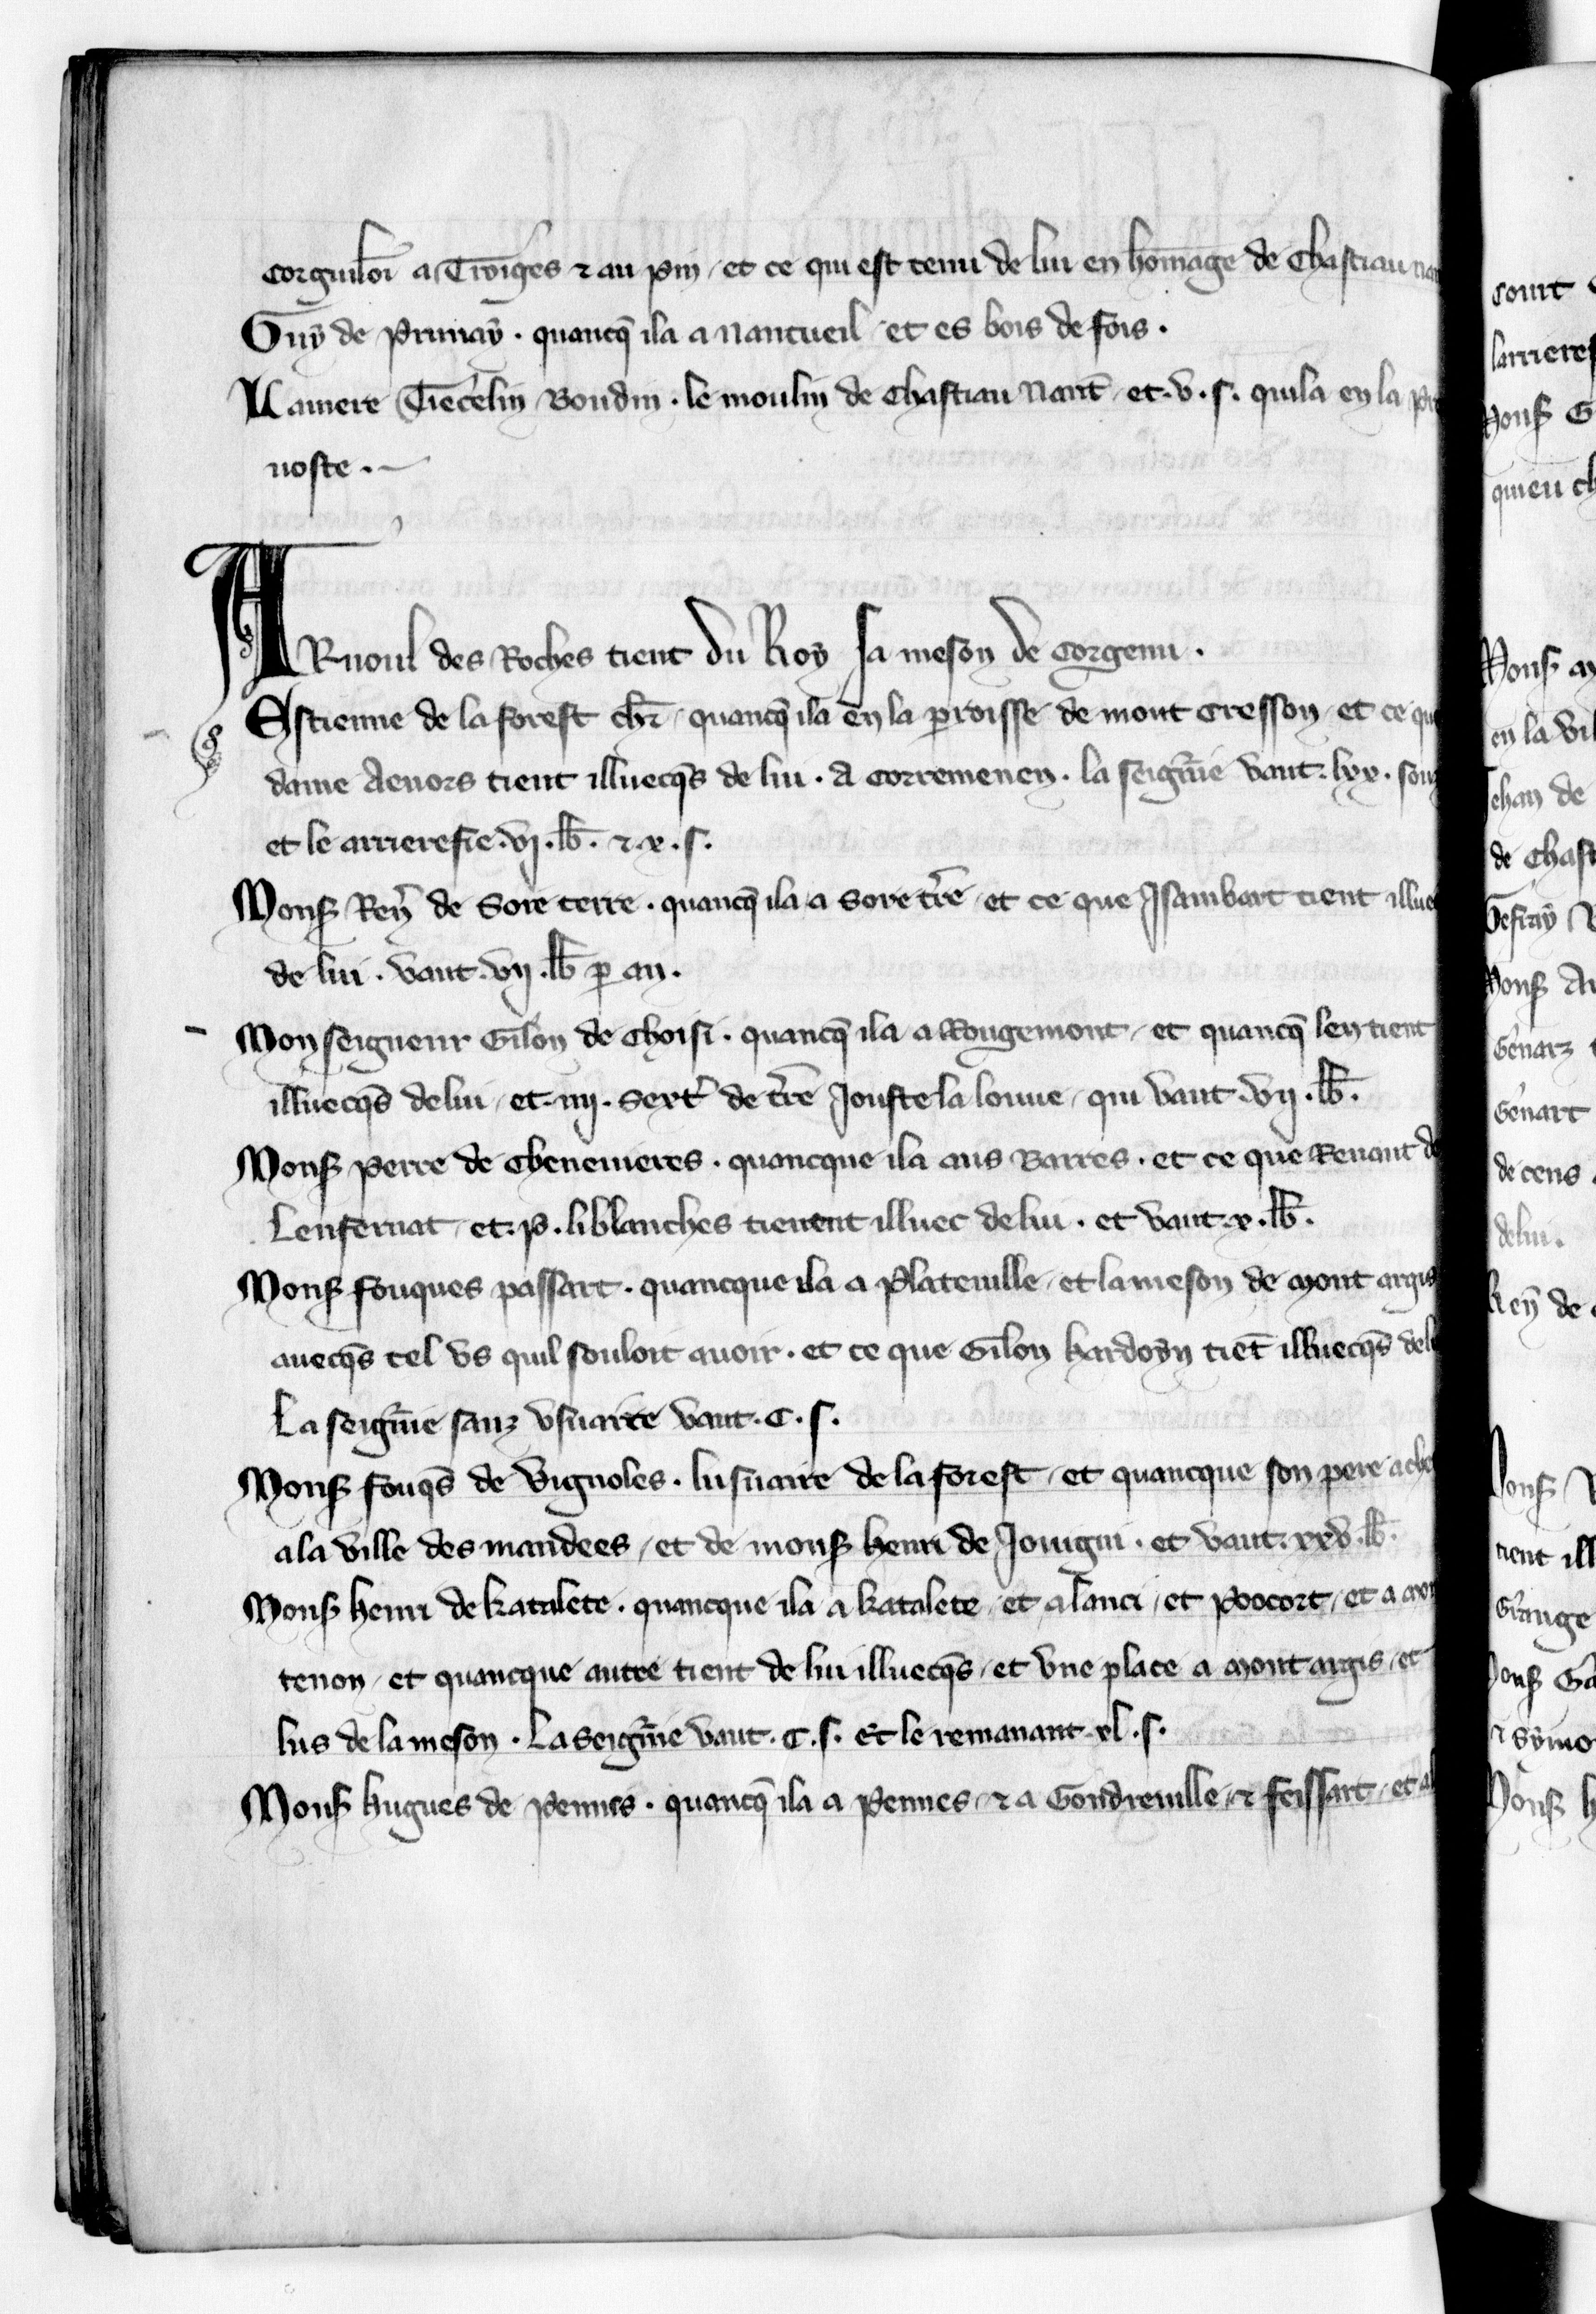 corguiloī a Troigēs ⁊ au pin / et ce qui est tenu de lui en hōmage de Chastiau
Guy de Prunay . quancq̄ il a a Nantueil / et es bois de fois .
La mere Tiecelin Boudin . le moulin de Chastiau Nant̄ / et . v . s . quil a en la
noste .
ARnoul des Roches tient du Roy sa meson de Corgenu .
Estienne de la forest chr̄ / quancq̄ il a en la ꝑroisse de mont Cresson / et ce
dame Aenors tient illuecq̄s de lui . A Corremenen . la seigñie vaut . lxx .
et le arrierefie . vj . lb̄ . ⁊ . x . s .
Mons̄ Reñ de Sore terre . quancq̄ il a a Sore tr̄re / et ce que Isambart tient
de lui . vaut . vij . lb̄ ꝑ an .
Monseigneur Gilon de Choisi . quancq̄ il a a Rougemont / et quancq̄ len tient
illuecq̄s de lui / et . iiij . sext̄ de tr̄re Jouste la loune / qui vaut . vij . lb̄ .
Mons̄ Perre de Chenevieres . quancque il a aus Barres . et ce que Renaut
Lenfernat / et . P . liblanches tienent illuec de lui . et vaut . x . lb̄ .
Mons̄ fouques passart . quancque il a a Plateville / et la meson de Mont argis
avecq̄s tel us quil souloit avoir . et ce que Gilon Kardoyn tiēt illuecq̄s
La seigñie sanz usuaire vaut . C . s .
Mons̄ fouq̄s de Vignoles . lusuaire de la forest / et quancque son pere
a la ville des mandees / et de mons̄ Henri de Jouigni . et vaut . xxv . lb̄ .
Mons̄ Henri de Katalete . quancque il a a Katalete / et a lanci / et Poocort / et a
tenon / et quancque autre tient de lui illuecq̄s / et une place a Mont argis / et
lus de la meson . La seigñie vaut . C . s . Et le remanant . xl . s .
Mons̄ Hugues de Pennes . quancq̄ il a a Pennes / ⁊ a Gondreville / ⁊ feissart / et
court
larriere
Mons̄ G
Mons̄
en la vil
ehan de
de Chast
Mons̄
Genarz
Genart
de cens
de lui .
Reñ de
Mons̄
tient ill
Grange
Mons̄ Ga
⁊ Symo
Mons̄ h